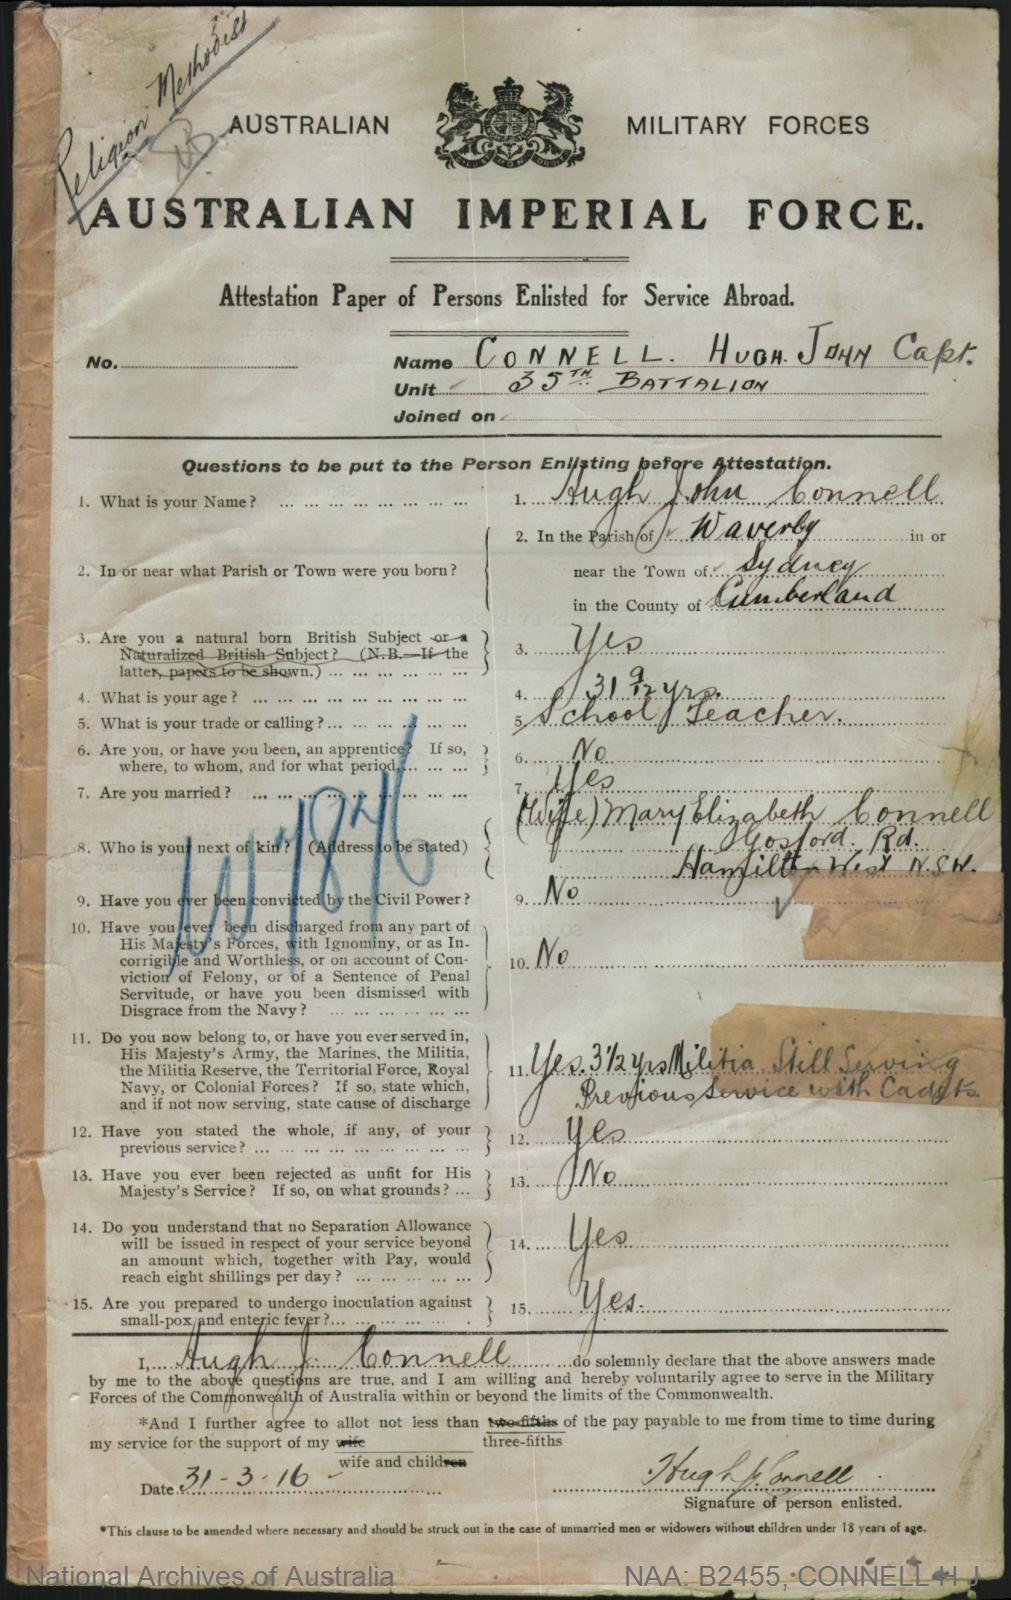 Religion Methodist
AUSTRALIAN MILITARY FORCES
AUSTRALIAN IMPERIAL FORCE.
Attestation Paper of Persons Enlisted for Service Abroad.
No. Name CONNELL. HUGH. JOHN Capt.
Unit 35TH BATTALION
Joined on
Questions to be put to the Person Enlisting before Attestation.
1. What is your Name? ... 1. Hugh John Connell
2. In the Parish of Waverly in or
2. In or near what Parish or Town were you born? near the Town of Sydney
in the County of Cumberland
3. Are you a natural born British Subject or a
Naturalized British Subject? (N.B.—If the
latter, papers to be shown.) ... 3. Yes
4. What is your age? ... 4. 31 9/12 yrs.
5. What is your trade or calling? ... 5 School Teacher.
6. Are you, or have you been, an apprentice? If so,
where, to whom, and for what period, ... 6. No
7. Are you married? ... 7. Yes
(Wife) Mary Elizabeth Connell
8. Who is your next of kin? (Address to be stated) Gosford. Rd.
Hamilton West N.S.W.
W7876
9. Have you ever been convicted by the Civil Power? 9. No
10. Have you ever been discharged from any part of
His Majesty's Forces, with Ignominy, or as In-
corrigible and Worthless, or on account of Con-
viction of Felony, or of a Sentence of Penal
Servitude, or have you been dismissed with
Disgrace from the Navy? ... 10. No
11. Do you now belong to, or have you ever served in,
His Majesty's Army, the Marines, the Militia,
the Militia Reserve, the Territorial Force, Royal
Navy, or Colonial Forces? If so, state which,
and if not now serving, state cause of discharge
11. Yes. 3 1/2 yrs Militia Still Serving
Previous Service with Cadets
12. Have you stated the whole, if any, of your
previous service? ... 12. Yes
13. Have you ever been rejected as unfit for His
Majesty's Service? If so, on what grounds? ... 13. No
14. Do you understand that no Separation Allowance
will be issued in respect of your service beyond
an amount which, together with Pay, would
reach eight shillings per day? ... 14. Yes
15. Are you prepared to undergo inoculation against
small-pox and enteric fever? ... 15. Yes.
I, Hugh J. Connell do solemnly declare that the above answers made
by me to the above questions are true, and I am willing and hereby voluntarily agree to serve in the Military
Forces of the Commonwealth of Australia within or beyond the limits of the Commonwealth.
*And I further agree to allot not less than two-fifths of the pay payable to me from time to time during
three-fifths
my service for the support of my wife
wife and children
Date 31-3-16 Hugh J. Connell
Signature of person enlisted.
*This clause to be amended where necessary and should be struck out in the case of unmarried men or widowers without children under 18 years of age.
National Archives of Australia NAA: B2455, CONNELL H J